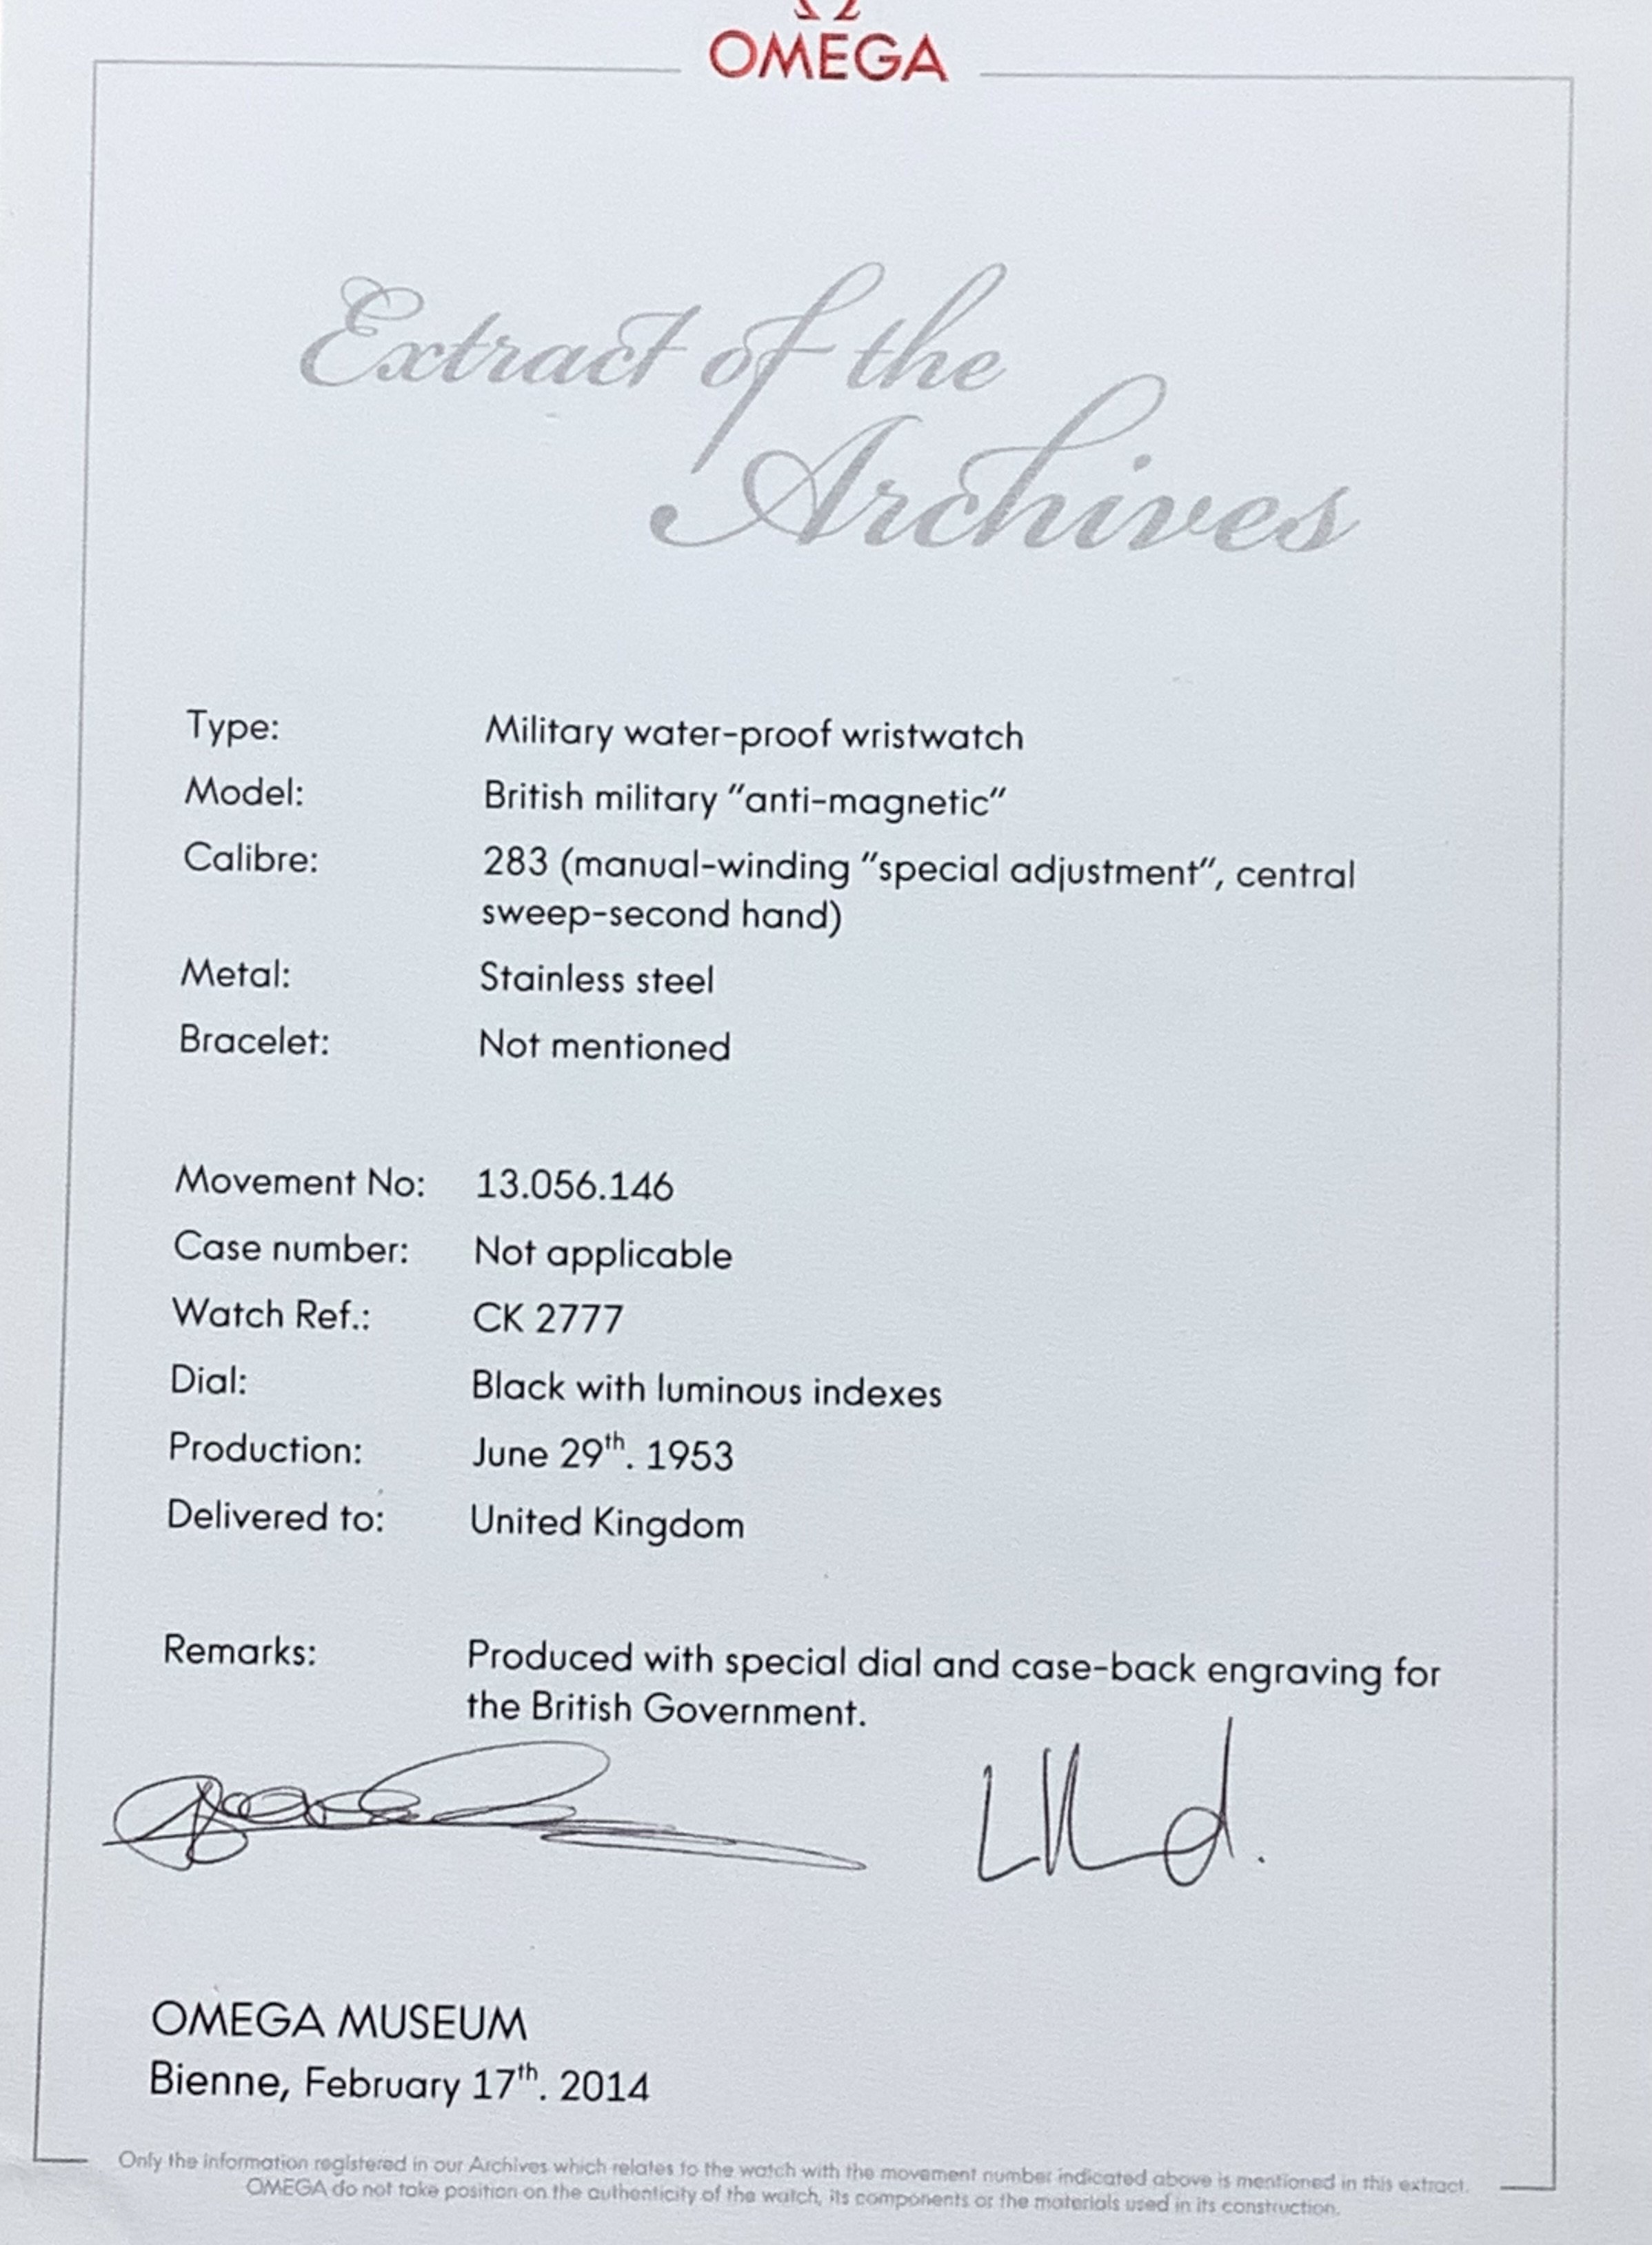 OMEGA
Extract of the
Archives
Type: Military water-proof wristwatch
Model: British military "anti-magnetic"
Calibre: 283 (manual-winding "special adjustment", central
sweep-second hand)
Metal: Stainless steel
Bracelet: Not mentioned
Movement No: 13.056.146
Case number: Not applicable
Watch Ref.: CK 2777
Dial: Black with luminous indexes
Production: June 29th. 1953
Delivered to: United Kingdom
Remarks: Produced with special dial and case-back engraving for
the British Government.
OMEGA MUSEUM
Bienne, February 17th. 2014
Only the information registered in our Archives which relates to the watch with the movement number indicated above is mentioned in this extract.
OMEGA do not take position on the authenticity of the watch, its components or the materials used in its construction.